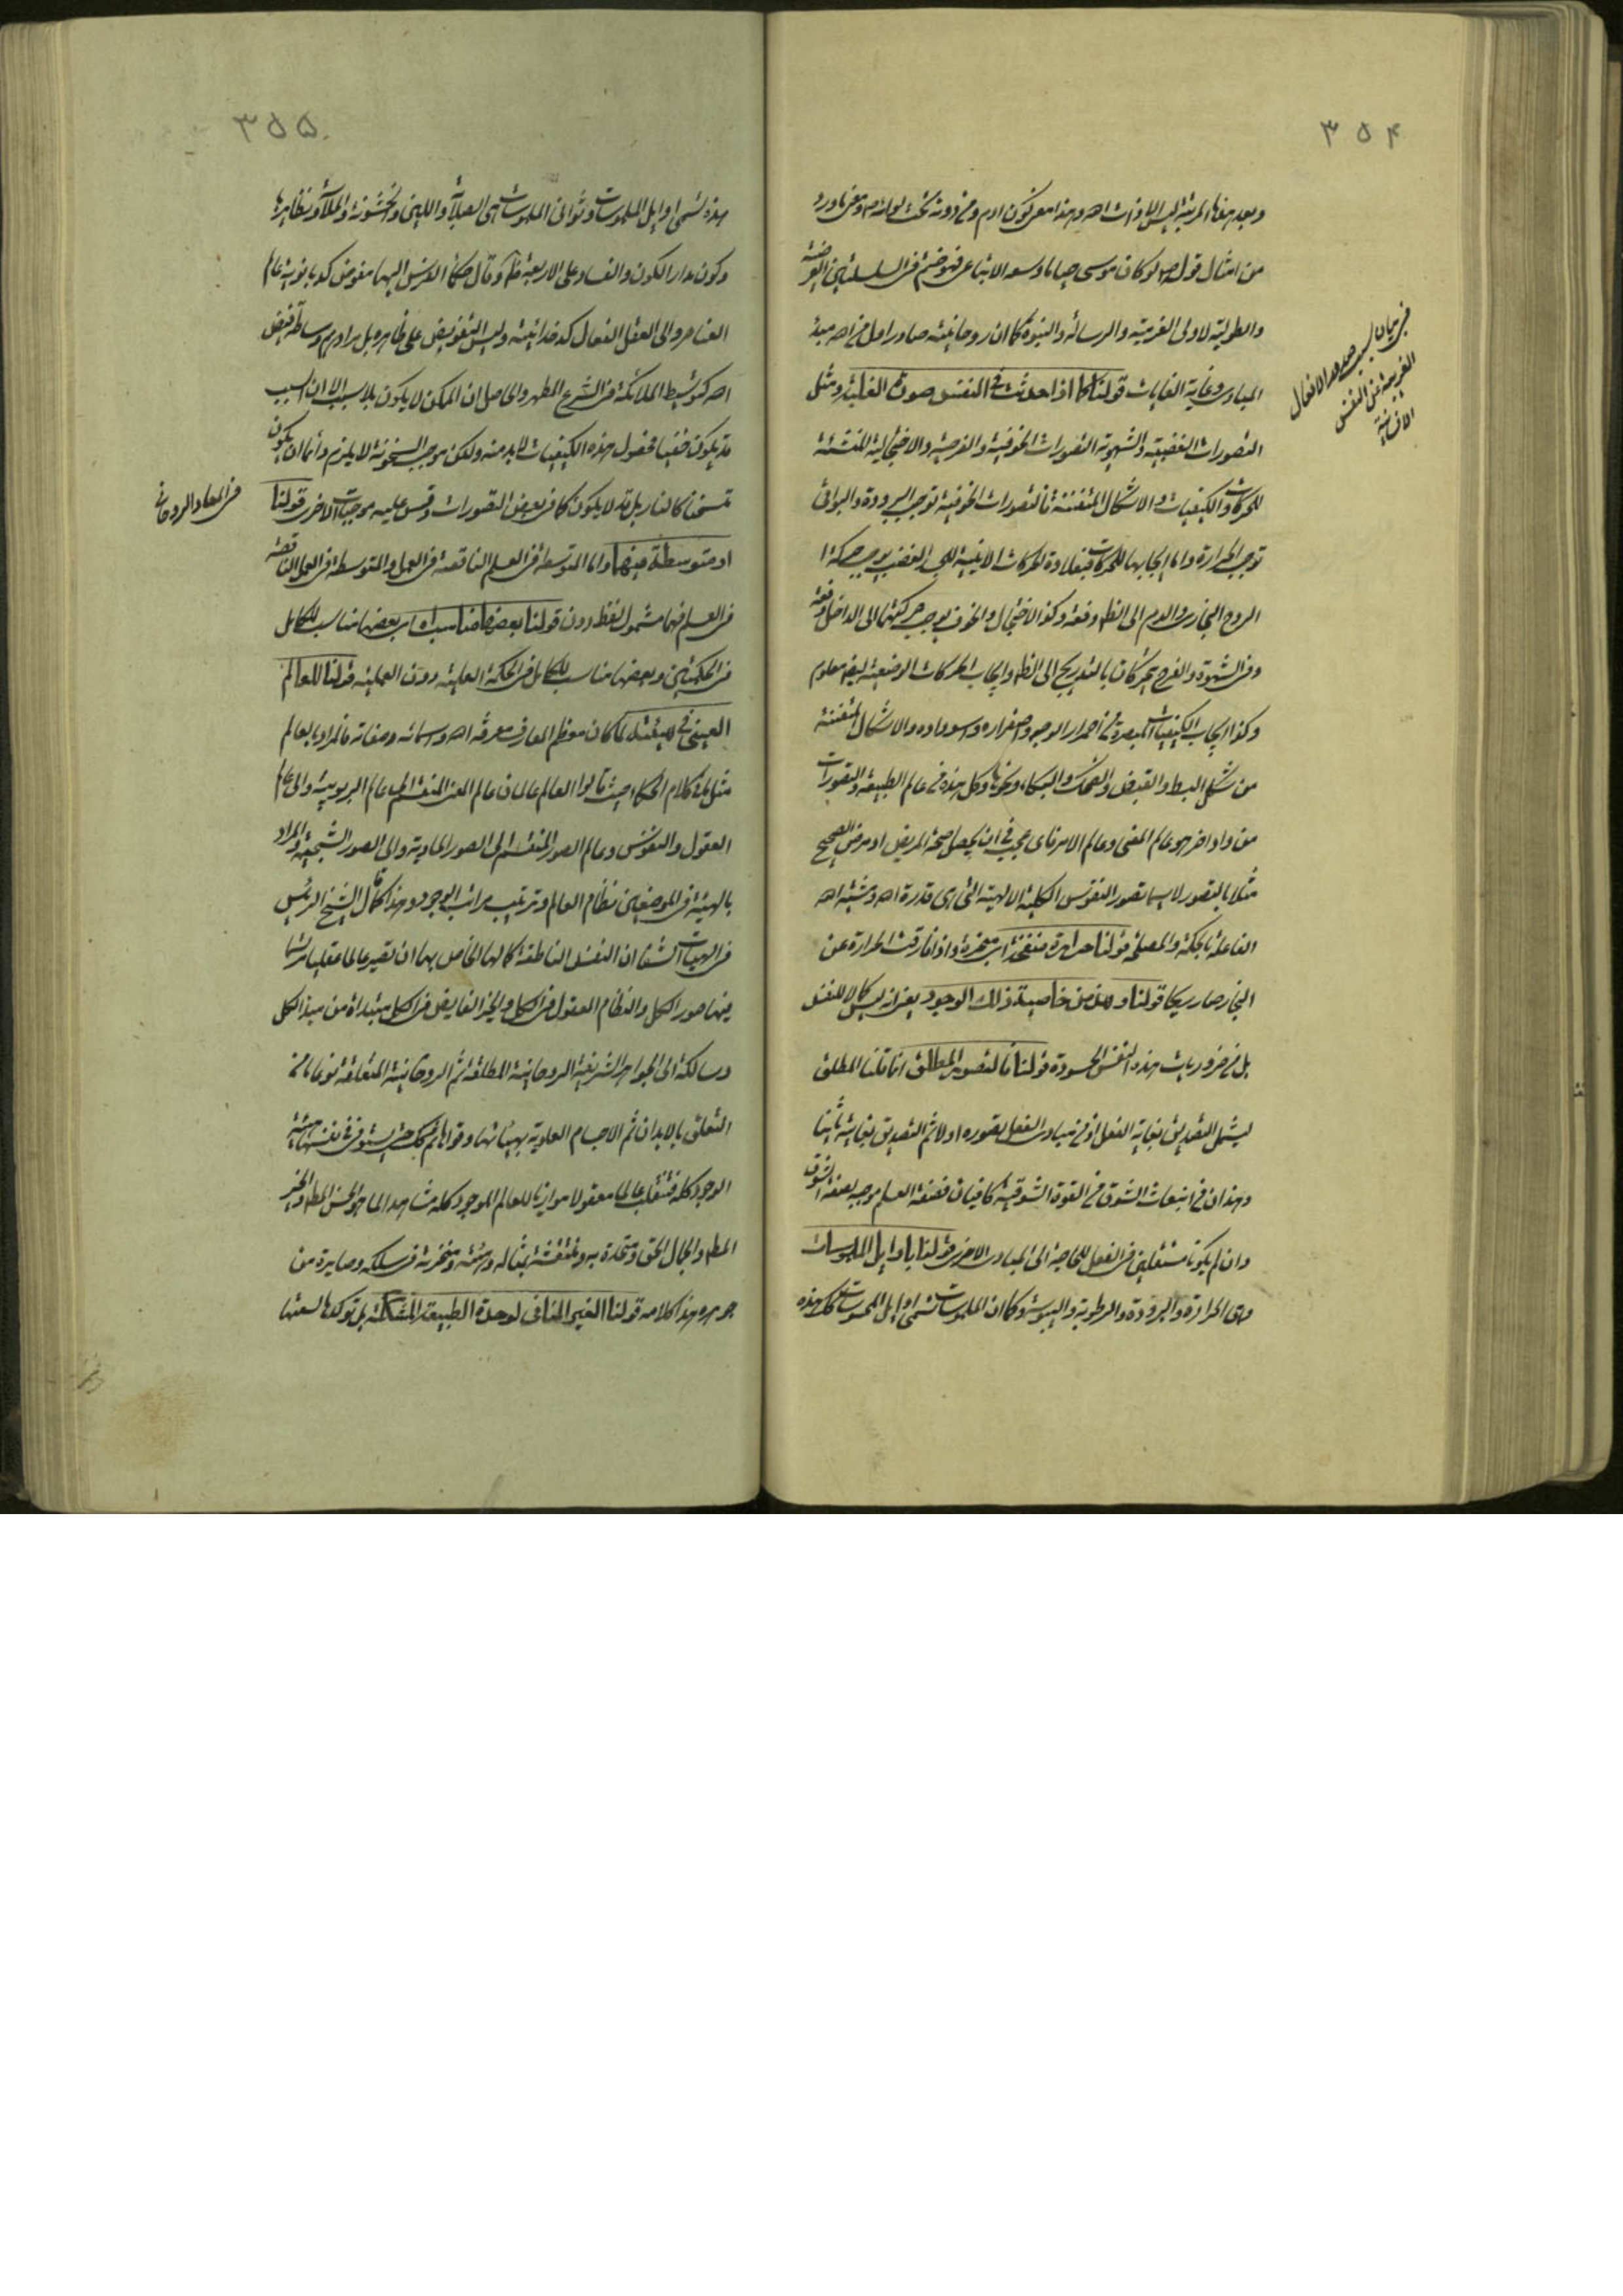 ٣٥٤
وبعد هذا المرتبة ليس الا ذات الله وهذا معنى كون ادم ومن دونه تحت لوائه ص ومعنى ما ورد
من امثال قوله ص لو كان موسى حيا ما وسعه الا اتباعى فهو ختم فى السلسلتين العرضية
والطولية لاولى العزمية والرسالة والنبوة كما ان روحانيته صادر اول من الله مبدء
المبادى وغاية الغايات قولنا كما اذا حدثت فى النفس صورة الغلبة ومثل
التصورات الغضبية والشهوية التصورات الخوفية والفرحية والاخجالية المنشئة
للحركات والكيفيات والاشكال المتفننة فالتصورات الخوفية توجب البرودة والبواقى
توجب الحرارة واما ايجابها للحركات فبافادة الحركات الاينية اذ الغضب يوجب حركة
الروح البخارى والدم الى الظاهر دفعة وكذا الاخجال والخوف يوجب حركتهما الى الداخل دفعة
وفى الشهوة والفرح يتحركان بالتدريج الى الظاهر وايجاب الحركات الوضعية ايضا معلوم
وكذا ايجاب الكيفيات المبصرة من احمرار الوجه واصفراره واسوداده والاشكال المتفننة
من شكل البسط والقبض والضحك والبكاء ونحوها وكل هذه فى عالم الطبيعة والتصورات
من واد اخر هو عالم المعنى وعالم الامر فاى عجب فى ان يحصل صحة المريض او مرض الصحيح
مثلا بالتصور لا سيما تصور النفوس الكلية الالهية التى هى قدرة الله ومشية الله
الفاعلة بالحكمة والمصلحة قولنا حرارة منفخة اى مبخرة واذا فارقت الحرارة عن
البخار صار ريحا قولنا وهذا من خاصية ذلك الوجود يعنى انه ليس كمالا للنفس
بل من ضروريات هذه النفس الحسودة قولنا فالتصور المطلق انما قلنا المطلق
ليشمل التصديق بغاية الفعل اذ من مبادى الفعل تصوره اولا ثم التصديق بغايته ثانيا
وهذان فى انبعاث الشوق من القوة الشوقية كافيان فصفة العلم موجبة لصفة الشوق
وان لم يكونا مستقلين فى الفعل للحاجة الى المبادى الاخرى قولنا باوايل الملموسات
وهى الحرارة والبرودة والرطوبة واليبوسة وكما ان الملموسات تسمى اوايل المحسوسات كك هذه
فى بيان سبب صدور الافعال
الغريبة عن النفس
الانسانية
٣٥٥
هذه تسمى اوايل الملموسات وثوانى الملموسات هى الصلابة واللين والخشونة والملاسة ونظايرها
وكون مدار الكون والفساد على الاربعة ظاهر وقال حكماء الفرس اليها مفوض كدبانوية عالم
العناصر والى العقل الفعال كدخدائيته وليس التفويض على ظاهره بل مرادهم وساطة فيض
الله كتوسيط الملائكة فى الشرع المطهر والحاصل ان الممكن لا يكون بلا سبب الا ان السبب
قد يكون خفيا فحصول هذه الكيفيات لابد منه ولكن موجب السخونة لا يلزم دائما ان يكون
تسخنا كالنار بل قد لا يكون كما فى بعض التصورات وقس عليه موجبات الاخرى قولنا
او متوسطة فيهما واما المتوسطة فى العلم الناقصة فى العمل والمتوسطة فى العمل الناقصة
فى العلم فهما مشمول لفظ دون قولنا بعضها مناسب اه اى بعضها مناسب للكامل
فى الحكمتين وبعضها مناسب للكامل فى الحكمة العلمية دون العملية قولنا للعالم
العينى فى هيئته لما كان معظم المعارف معرفة الله واسمائه وصفاته فالمراد بالعالم
مثل ما فى كلام الحكماء حيث قالوا العالم عالمان عالم المعنى المنقسم الى عالم الربوبية والى عالم
العقول والنفوس وعالم الصور المنقسم الى الصور المادية والى الصور الشبحية والمراد
بالهيئة فى الموضعين نظام العالم وترتيب مراتب الوجود وهذا كما قال الشيخ الرئيس
فى الهيات الشفا ان النفس الناطقة كمالها الخاص بها ان تصير عالما عقليا مرتسما
فيها صور الكل والنظام المعقول فى الكل والخير الفايض فى الكل مبتداة من مبدء الكل
وسالكة الى الجواهر الشريفة الروحانية المطلقة ثم الروحانية المتعلقة نوعا ما من
التعلق بالابدان ثم الاجسام العلوية بهيئاتها وقواها ثم كك حتى يستوفى فى نفسها هيئة
الوجود كله فتنقلب عالما معقولا موازيا للعالم الموجود كله مشاهدا لما هو الحسن المطلق والخير
المطلق والجمال الحق ومتحدة به ومنتقشة بمثاله وهيئته ومنخرطة فى سلكه وصايرة من
جوهره هذا كلامه قولنا الغير المنافى لوحدة الطبيعة المشككة بل توكدها لسعتها
فى المعاد الروحانى